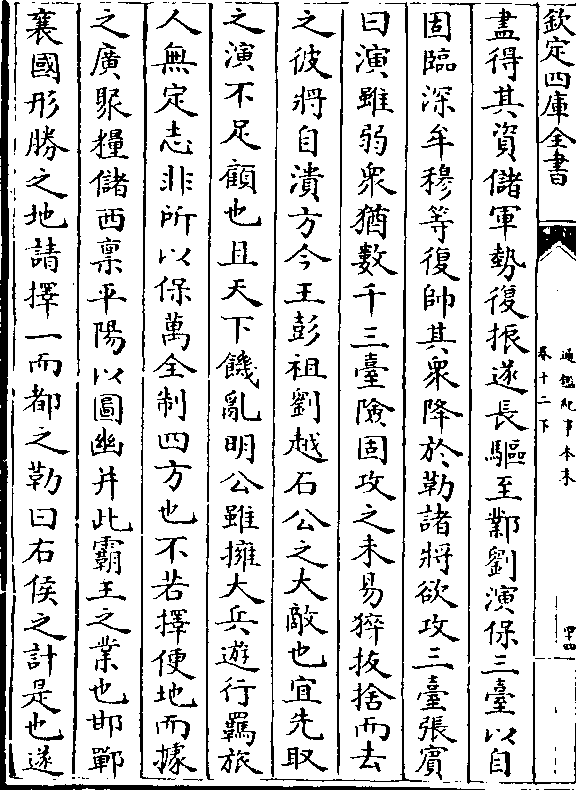 欽定四庫全書
通鑑紀事本末
卷十二下
四
盡得其資儲軍勢復振遂長驅至鄴劉演保三臺以自
固臨深牟穆等復帥其衆降於勒諸將欲攻三臺張賓
曰演雖弱衆猶數千三臺險固攻之未易猝拔捨而去
之彼將自潰方今王彭祖劉越石公之大敵也宜先取
之演不足顧也且天下饑亂明公雖擁大兵遊行羈旅
人無定志非所以保萬全制四方也不若擇便地而據
之廣聚糧儲西禀平陽以圖幽并此霸王之業也邯鄲
襄國形勝之地請擇一而都之勒曰右侯之計是也遂